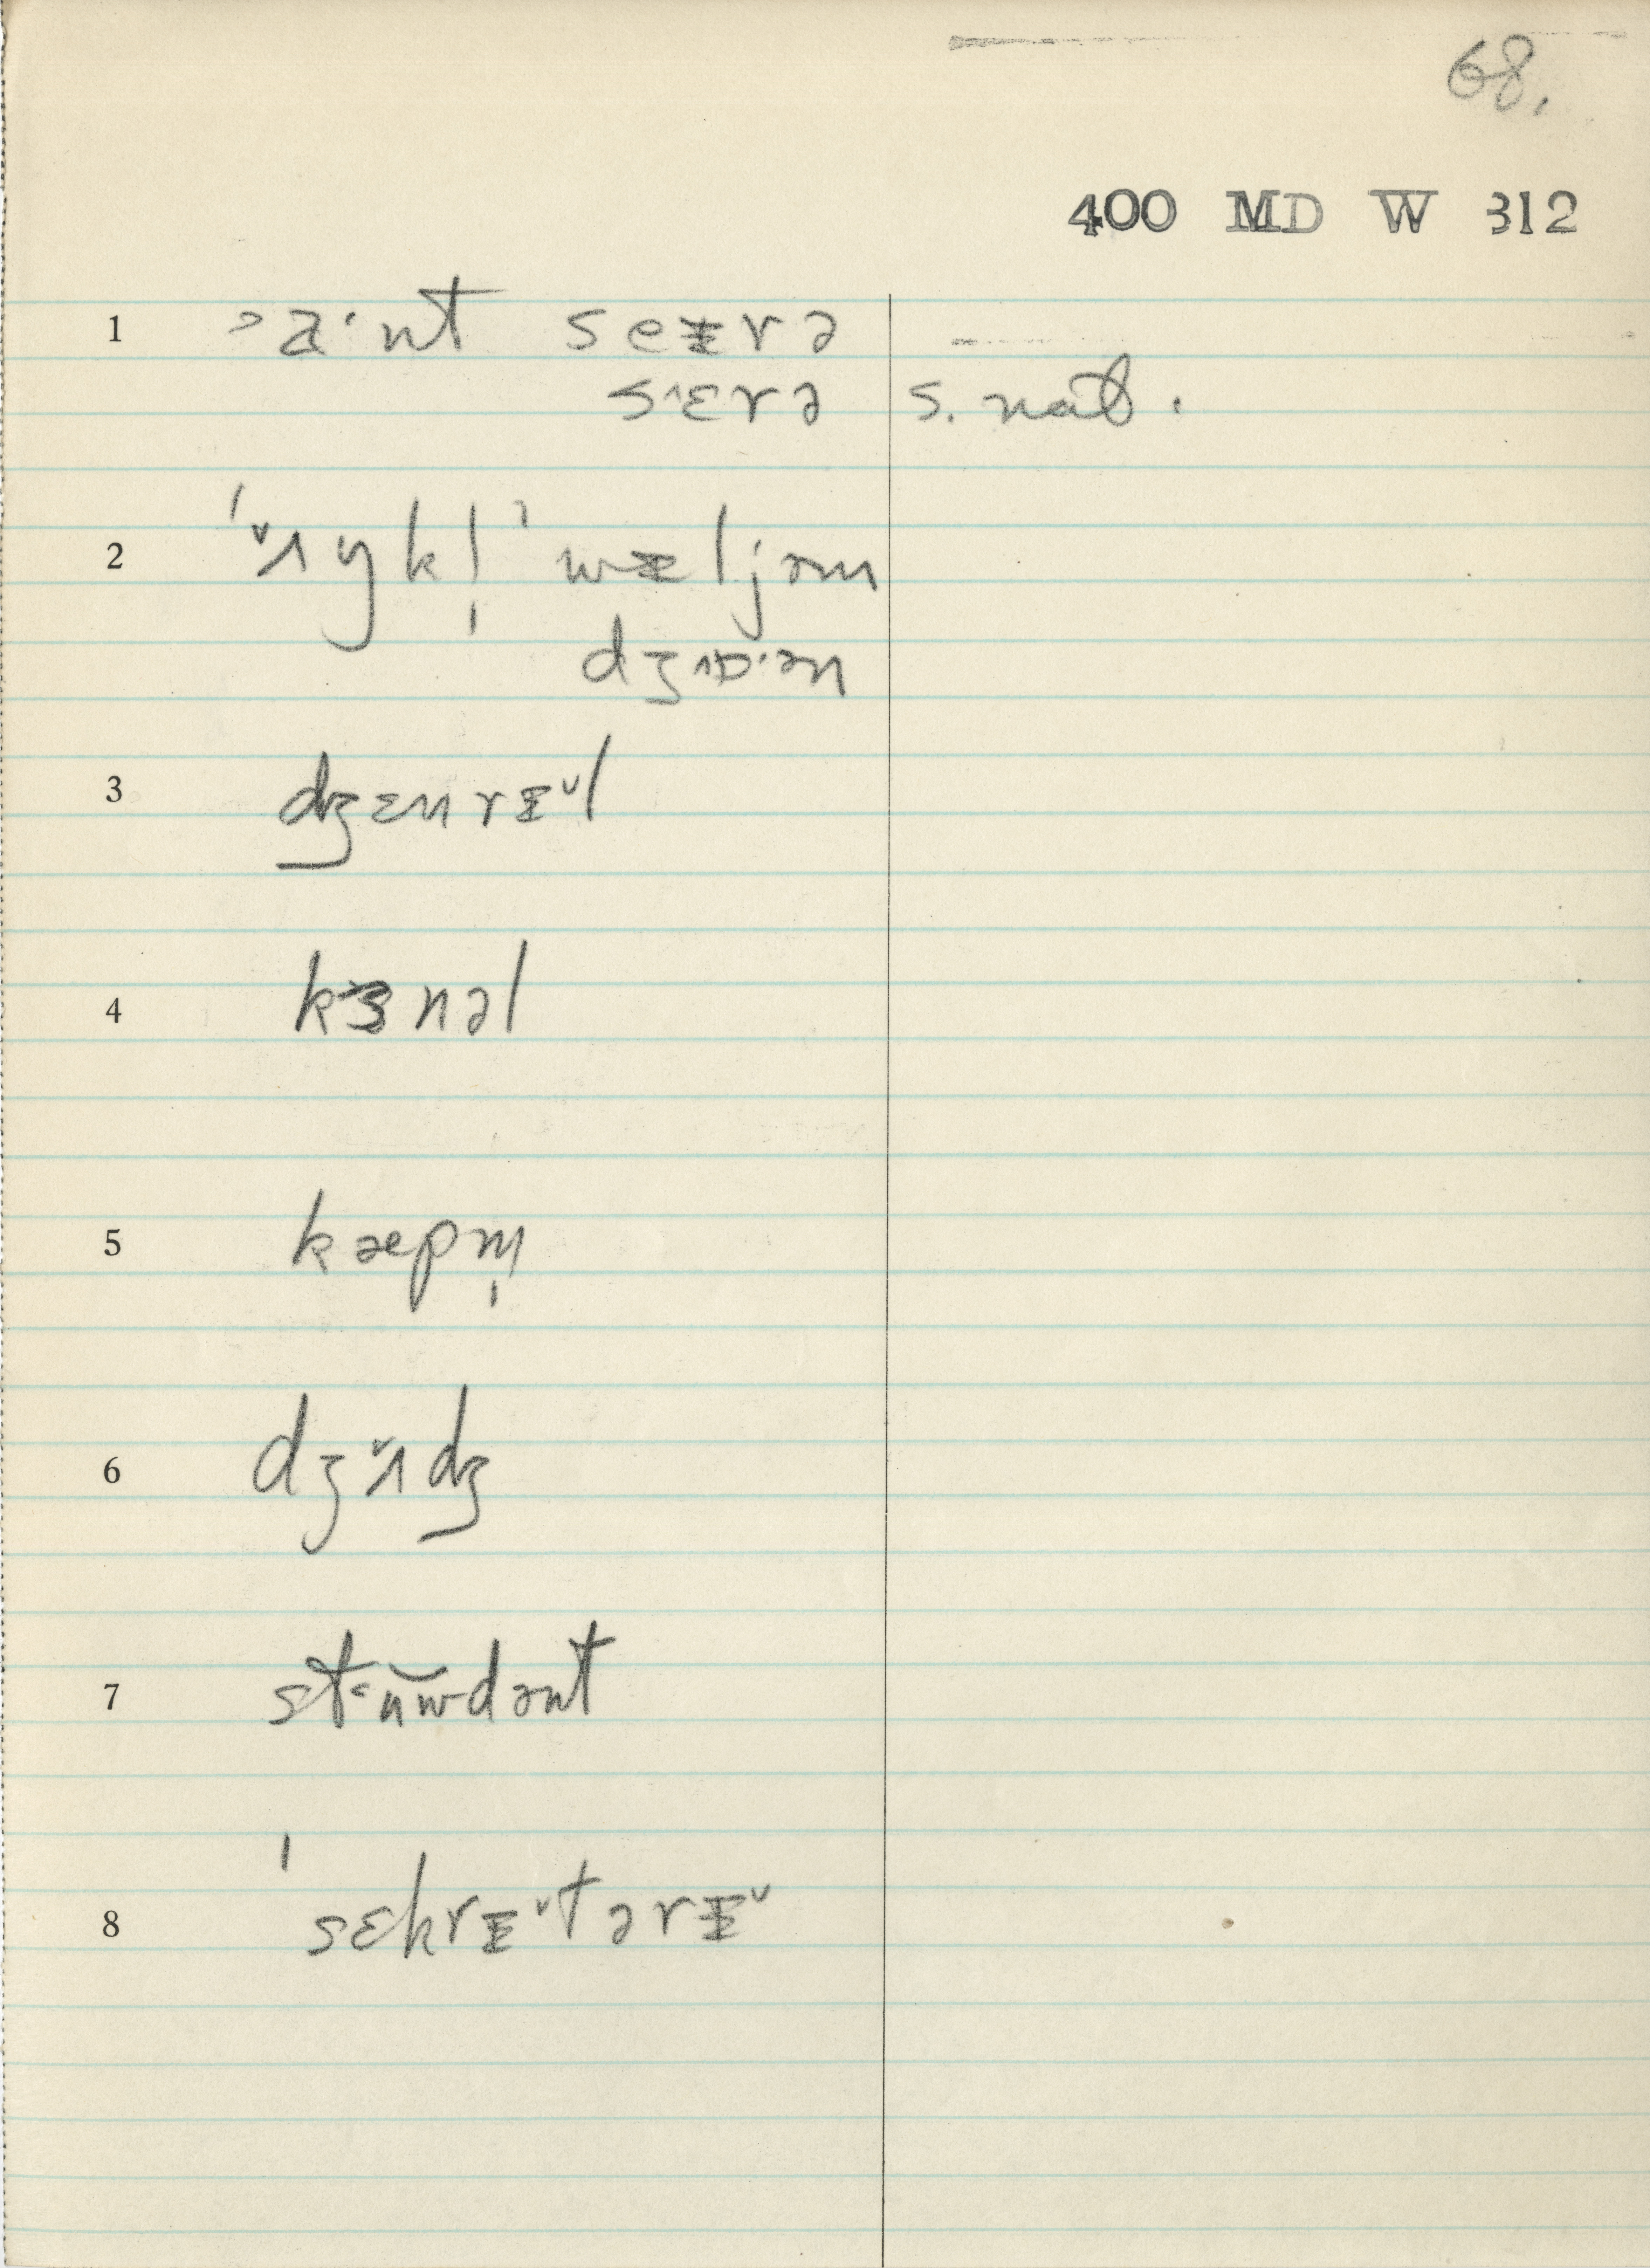 68.
400 MD W 312
1 ˃a·nt seᵻrə
s˄ɛrə s. nat.
2 ˈʌ̌ŋkl̩ ˈwᵻljəm
dʒ˄ɒ·ən
3 dʒɛnrᵻ˅l
4 kɜnəl
5 kæpm̩
6 dʒʌ̌dʒ
7 st˂u̯wdənt
8 ˈsɛkrᵻ˅tərᵻ˅